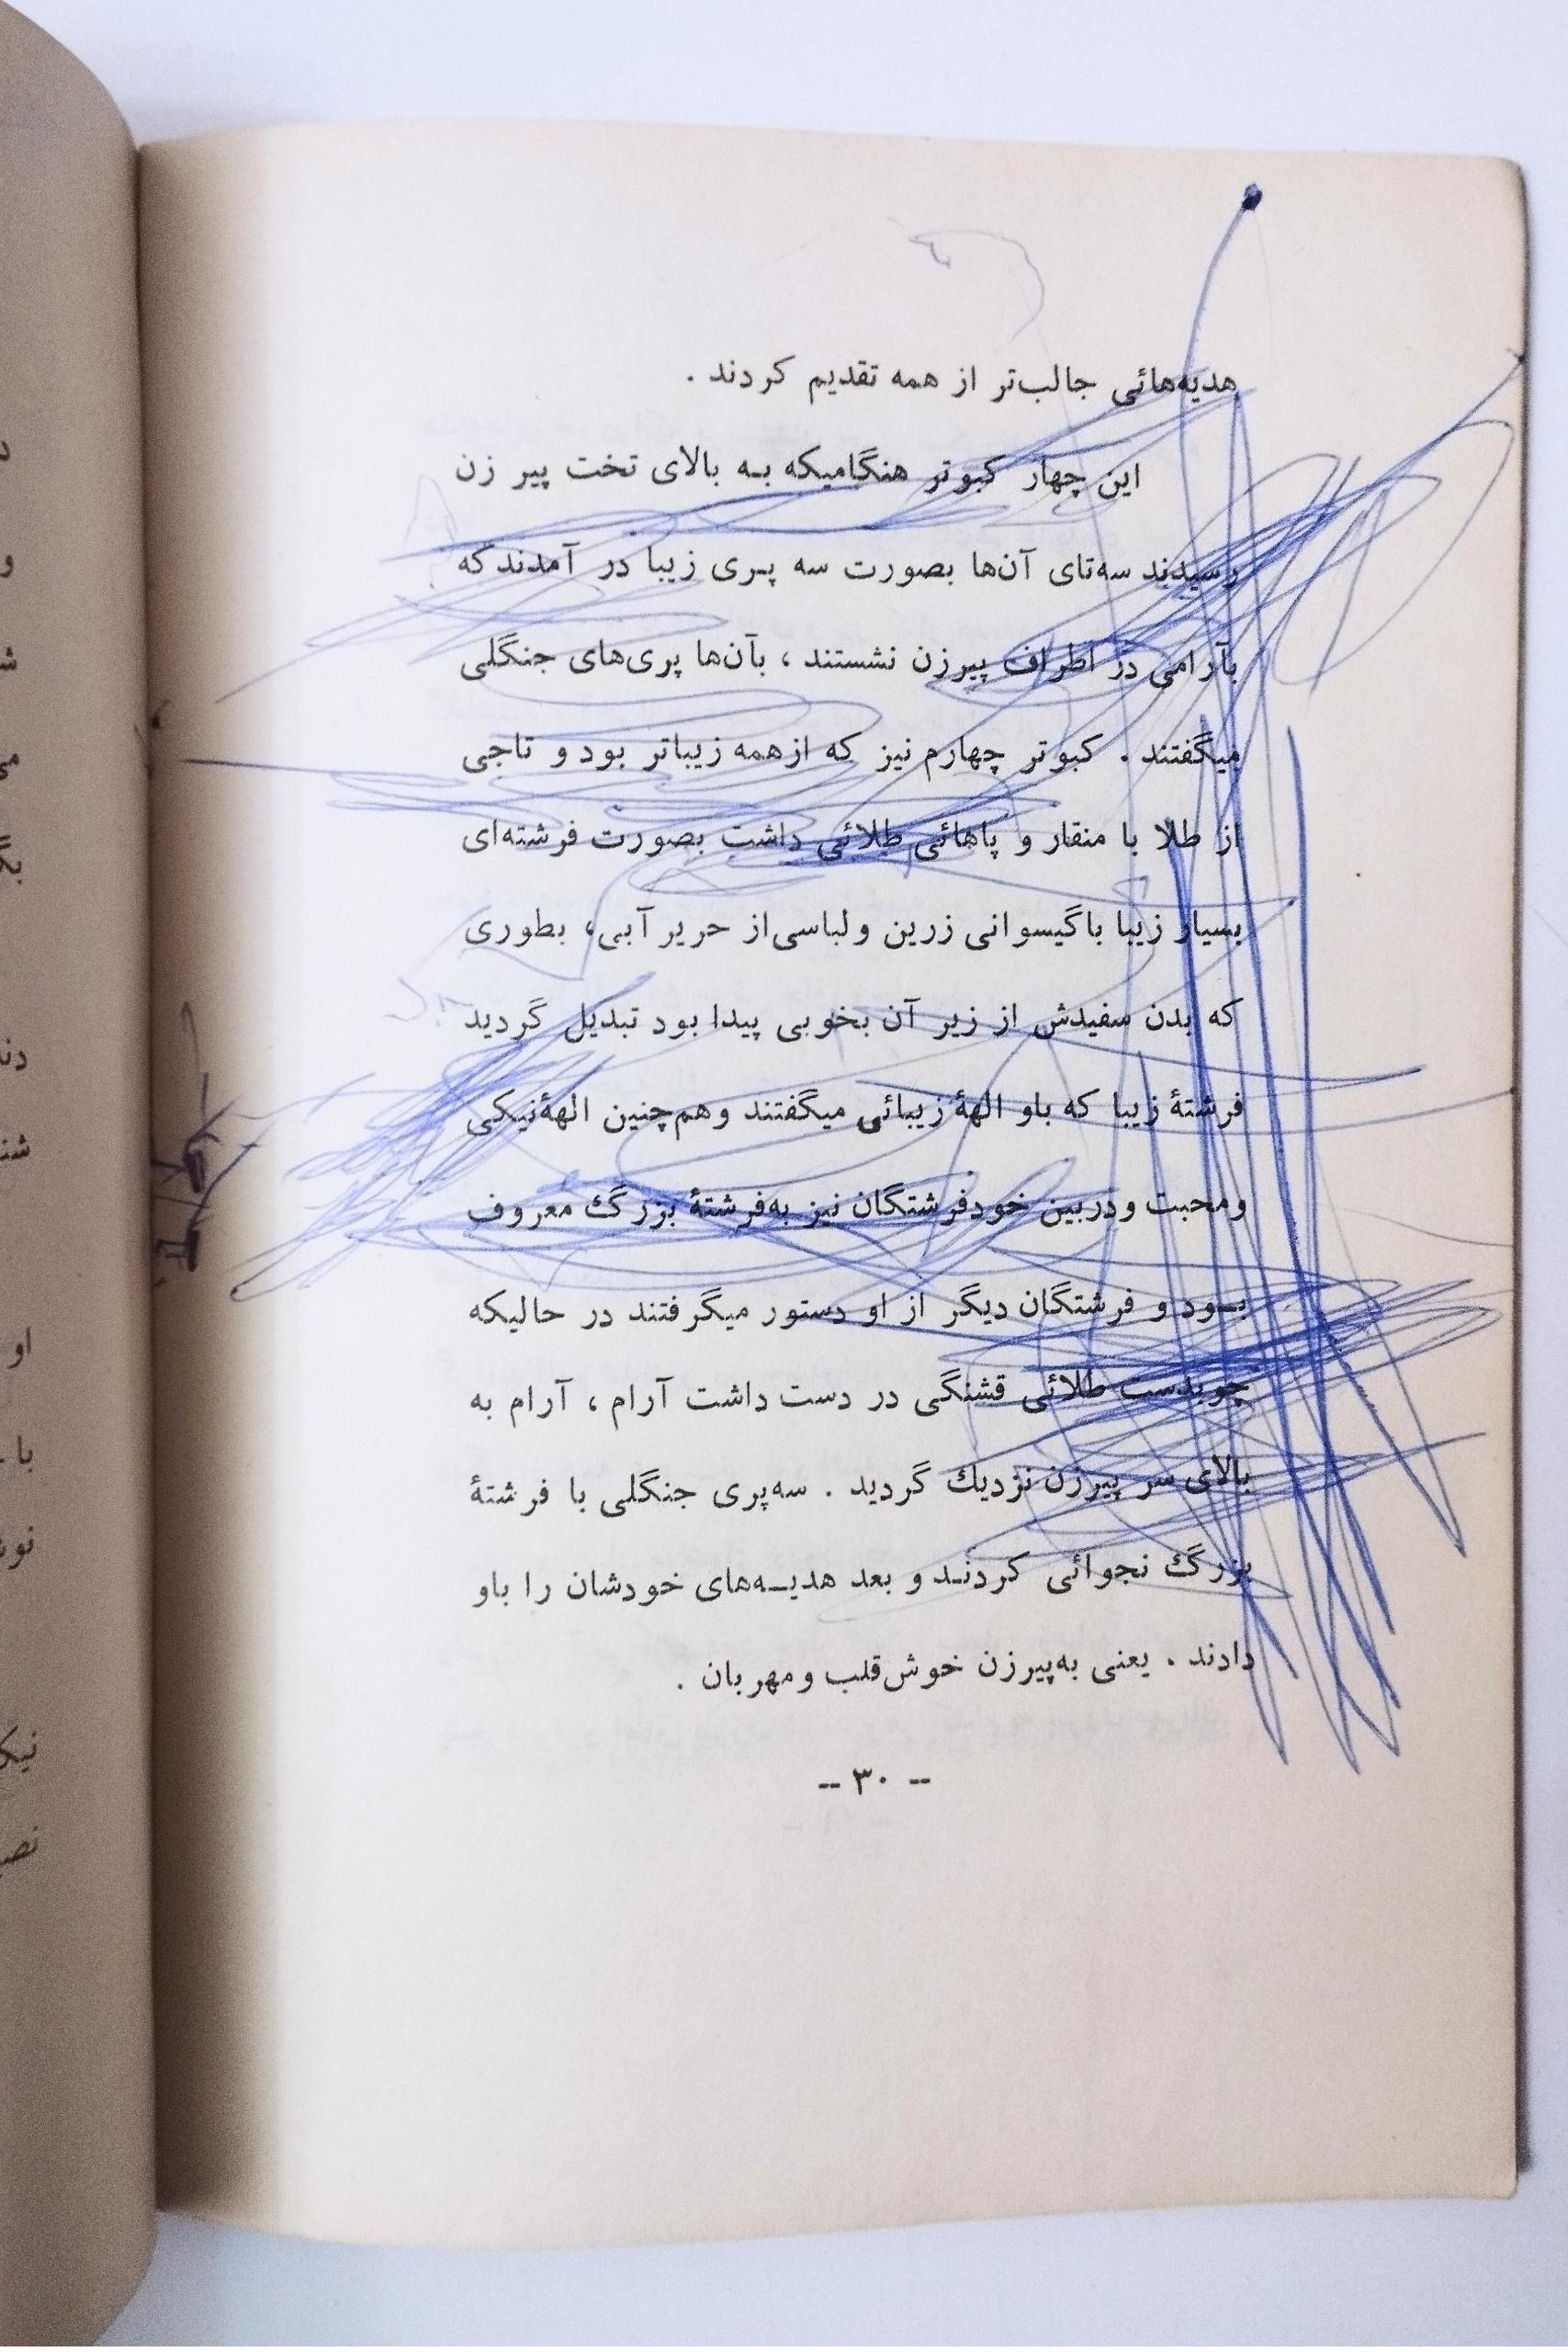 هدیه‌هائی جالب‌تر از همه تقدیم کردند .
این چهار کبوتر هنگامیکه بـه بالای تخت پیر زن
رسیدند سه‌تای آن‌ها بصورت سه پـری زیبا در آمدند که
بآرامی در اطراف پیرزن نشستند ، بآن‌ها پری‌های جنگلی
میگفتند . کبوتر چهارم نیز که از همه زیباتر بود و تاجی
از طلا با منقار و پاهائی طلائی داشت بصورت فرشته‌ای
بسیار زیبا با گیسوانی زرین و لباسی از حریر آبی، بطوری
که بدن سفیدش از زیر آن بخوبی پیدا بود تبدیل گردید
فرشتهٔ زیبا که باو الههٔ زیبائی میگفتند و هم‌چنین الههٔ نیکی
و محبت و در بین خود فرشتگان نیز به فرشتهٔ بزرگ معروف
بـود و فرشتگان دیگر از او دستور میگرفتند در حالیکه
چوبدست طلائی قشنگی در دست داشت آرام ، آرام به
بالای سر پیرزن نزدیك گردید . سه‌پری جنگلی با فرشتهٔ
بزرگ نجوائی کردنـد و بعد هدیـه‌های خودشان را باو
دادند . یعنی به‌پیرزن خوش‌قلب و مهربان .
-- ۳۰ --